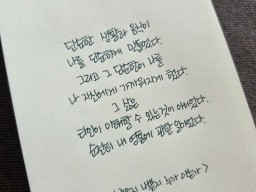 단순한 생활과 음식이
나를 단순하게 만들었다.
그리고 그 단순함이 나를
나 자신에게 가까워지게 했다.
그 삶은
타인이 이해할 수 있는 것이 아니었다.
순전히 내 영혼에 관한 일이었다.